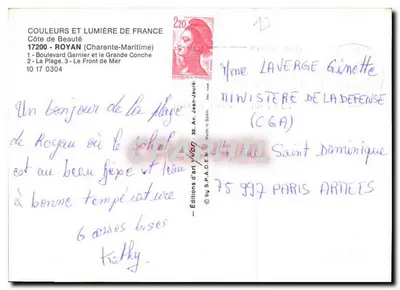 COULEURS ET LUMIÈRE DE FRANCE
Côte de Beauté
17200 - ROYAN (Charente-Maritime)
1 - Boulevard Garnier et la Grande Conche
2 - La Plage, 3 - Le Front de Mer
10 17 0304
Un bonjour de la plage
de Royan où le soleil
est au beau fixe et l'eau
à bonne température
Grosses bises
Kathy
Editions d'art yvon
30, Av. Jean-Jaurès
by S.P.A.D.E.M.
2,20
Mme LAVERGE Ginette
MINISTÈRE DE LA DEFENSE
(CGA)
rue Saint Dominique
75997 PARIS ARMEES